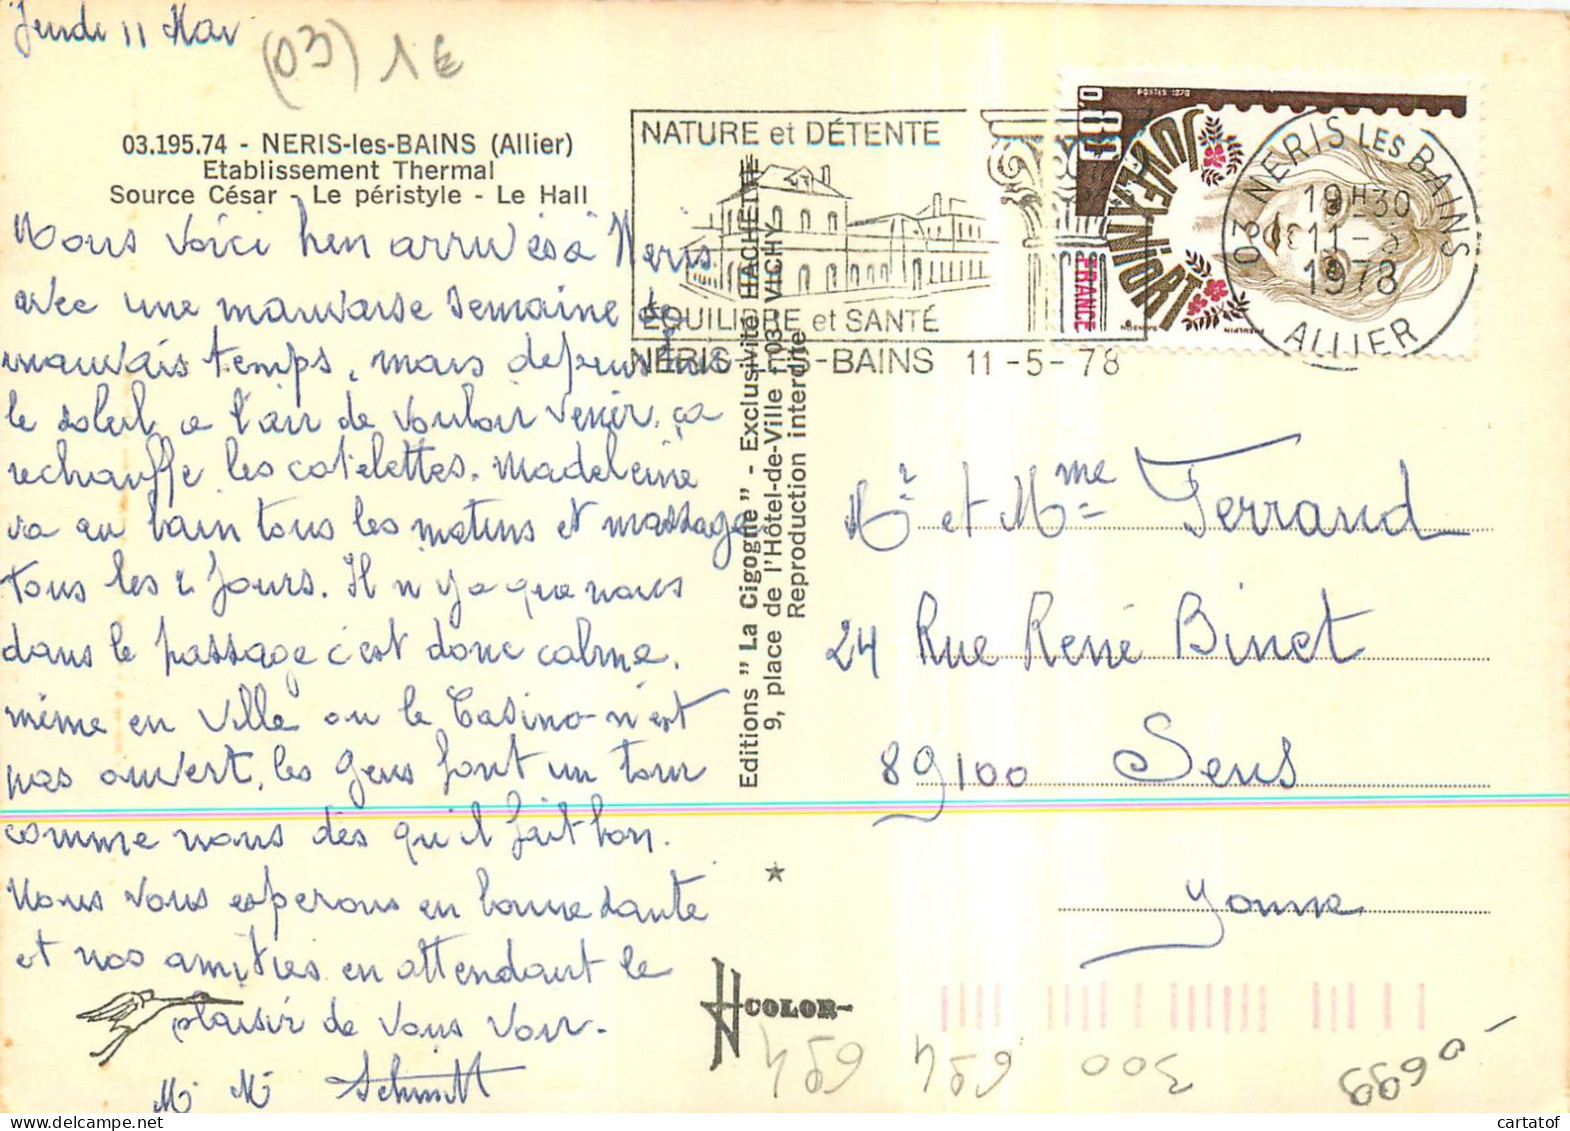 Jeudi 11 Mai
(03) 1 €
03.195.74 - NERIS-les-BAINS (Allier)
Etablissement Thermal
Source César - Le péristyle - Le Hall
Nous voici bien arrivés à Neris
avec une mauvaise semaine de
mauvais temps, mais depuis hier
le soleil a l'air de vouloir venir, ça
rechauffe les cotelettes. Madeleine
va au bain tous les matins et massage
tous les 2 jours. Il n'y a que nous
dans le passage c'est donc calme.
même en ville ou le Casino n'est
pas ouvert, les gens font un tour
comme nous dès qu'il fait bon.
Nous vous esperons en bonne santé
et nos amitiés en attendant le
plaisir de vous voir.
M. M. Schmitt
NATURE et DÉTENTE
ÉQUILIBRE et SANTÉ
NERIS-LES-BAINS 11-5-78
POSTES 1978
0,80
JUVEXNIORT
FRANCE
03 NERIS LES BAINS
19H30
11-5
1978
ALLIER
Editions "La Cigogne" - Exclusivité HACHETTE
9, place de l'Hôtel-de-Ville - 03 - VICHY
Reproduction interdite
Mr et Mme Ferrand
24 Rue René Binet
89100 Sens
Yonne
COLOR-
459 654 654 300
0699
cartatof